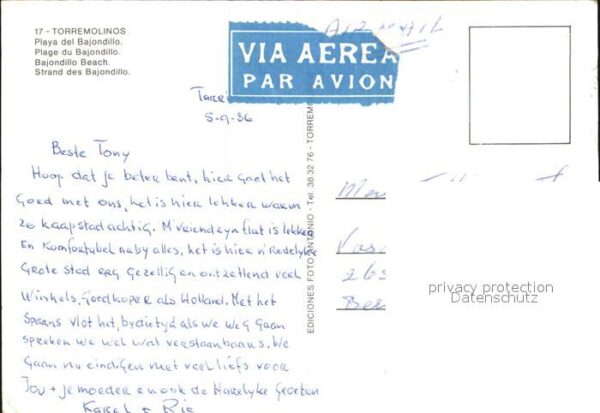 17 - TORREMOLINOS
Playa del Bajondillo.
Plage du Bajondillo.
Bajondillo Beach.
Strand des Bajondillo.
AIR MAIL
VIA AEREA
PAR AVION
Torri
5-9-86
Beste Tony
Hoop dat je beter bent, hier gaat het
Goed met ons, het is hier lekker warm
zo kaapstad achtig. M'vriend zyn flat is lekker
En komfortabel naby alles, het is hier n' Redelijke
Grote stad erg gezellig en ontzettend veel
Winkels, Goedkoper als Holland. Met het
Spaans vlot het, by die tyd als we weg gaan
spreken we wel wat verstaanbaars. We
Gaan nu eindigen met veel liefs voor
Jou + je moeder en ook de Hartelyke Groeten
Karel + Rie
EDICIONES FOTO ANTONIO - Tel: 38 32 76 - TORREMO
Vas
263
privacy protection
Datenschutz